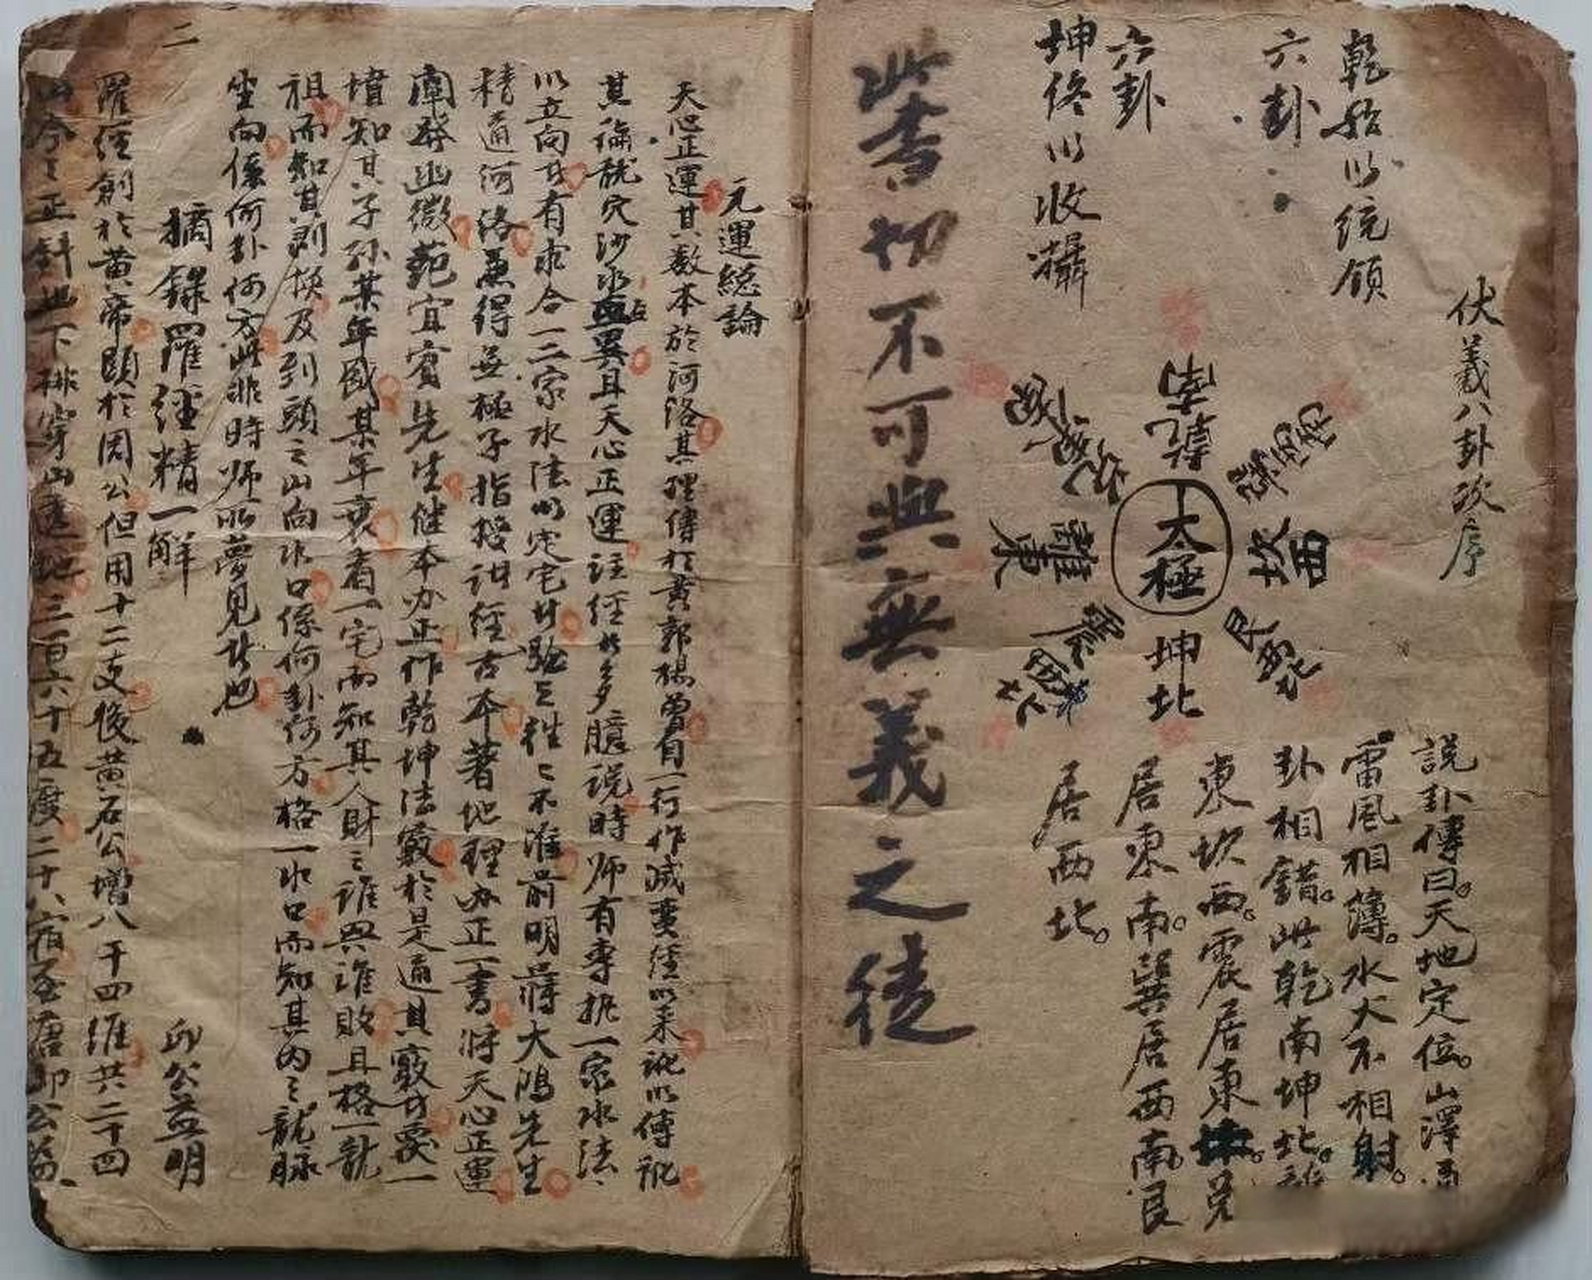 伏羲八卦次序
乾始以统领
六卦
六卦
坤终以收攝
乾南
兌東南
離東
震東北
太極
巽西南
坎西
艮西北
坤北
説卦傳曰。天地定位。山澤通
雷風相薄。水火不相射。
卦相錯。此乾南坤北。離
東坎西。震居東北。兌
居東南。巽居西南。艮
居西北。
此書切不可與無義之徒
元運總論
天心正運其数本於河洛其理傳於黄郭楊曾自一行作滅蛮經以来訛以傳訛
其論龍穴沙水直異耳天心正運註經者多臆説時师有專执一家水法
以立向者有求合一二家水法以定宅者验之往々不准前明蔣大鴻先生
精通河洛兼得無極子指授註經古本著地理办正一書将天心正運
闡發幽微範宜賓先生继本办正作乾坤法竅於是通其竅者覆一
墳知其子孙某年盛某年衰看一宅而知其人財之誰興誰敗且格一龍
祖而知其剥换及到頭之山向水口係何卦何方格一水口而知其内之龍脉
坐向係何卦何方此非時师所夢見者也
摘錄羅經精一解
邱公益明
羅經創於黄帝顕於周公但用十二支後黄石公增八干四維共二十四
山今之正針地下排穿山透地三百六十五度二十八宿至唐邱公益
二